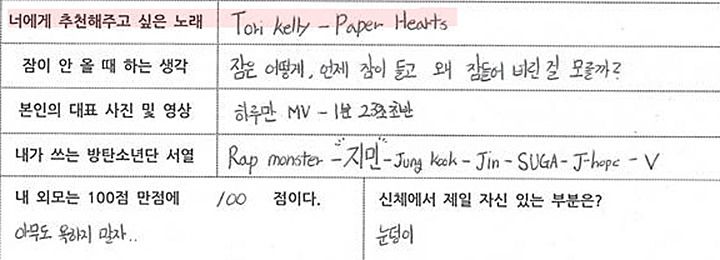 너에게 추천해주고 싶은 노래 Tori kelly - Paper Hearts
잠이 안 올 때 하는 생각 잠은 어떻게, 언제 잠이 들고 왜 잠들어 버린 걸 모를까?
본인의 대표 사진 및 영상 하루만 MV - 1분 23초초반
내가 쓰는 방탄소년단 서열 Rap monster - 지민 - Jung kook - Jin - SUGA - J-hope - V
내 외모는 100점 만점에 100 점이다.
아무도 욕하지 말자..
신체에서 제일 자신 있는 부분은?
눈덩이